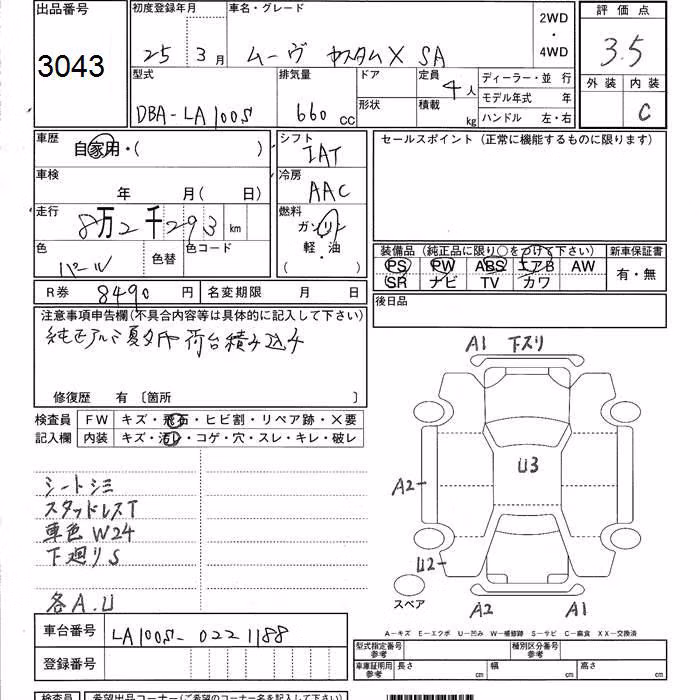 出品番号
3043
初度登録年月
25 3月
車名・グレード
ムーヴ カスタムX SA
2WD
・
4WD
評価点
3.5
外装 内装
C
型式
DBA-LA100S
排気量
660 cc
ドア
形状
定員
4人
積載
kg
ディーラー・並行
モデル年式 年
ハンドル 左・右
車歴
自家用・( )
シフト
IAT
セールスポイント (正常に機能するものに限ります)
車検
年 月( 日)
冷房
AAC
走行
8万2千293km
燃料
ガソリン
軽・油
・
( )
色
パール
色替
色コード
装備品 (純正品に限り○をつけて下さい)
新車保証書
PS PW ABS エアB AW
SR ナビ TV カワ
有・無
R券 8490円
名変期限 月 日
後日品
注意事項申告欄(不具合内容等は具体的に記入して下さい)
純正アルミ夏タイヤ荷台積み込み
修復歴 有 〔箇所 〕
検査員
記入欄
FW キズ・飛石・ヒビ割・リペア跡・X要
内装 キズ・汚レ・コゲ・穴・スレ・キレ・破レ
シートシミ
スタッドレスT
車色W24
下廻りS
各A.U
A1 下スリ
U3
A2
U2
スペア
A2 A1
A-キズ E-エクボ U-凹み W-補修跡 S-サビ C-腐食 XX-交換済
車台番号 LA100S-0221188
登録番号
型式指定番号
参考
種別区分番号
参考
車庫証明用
参考
長さ cm 幅 cm 高さ cm
検査員 希望出品コーナー(ご希望のコーナー名を記入して下さい)